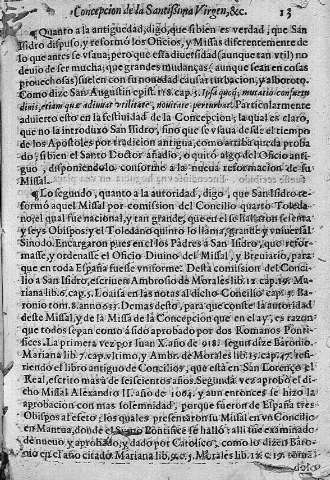 Concepcion de la Santissima Virgen, &c. 13
¶ Quanto a la antiguedad, digo, que si bien es verdad, que San
Isidro dispuso, y reformò los Oficios, y Missas diferentemente de
lo que antes se vsaua; pero que esta diuersidad (aunque tan vtil) no
deuio de ser mucha; que grandes mudanças (aunque sean en cosas
prouechosas) suelen con su nouedad causar turbacion, y alboroto.
Como dize San Augustin epist. 118. cap. 5. Ipsa quoq; mutatio consuetu
dinis, etiam quæ adiuuat vtilitate, nouitate perturbat. Particularmente
aduierto esto en la festiuidad de la Concepcion, la qual es claro,
que no la introduxo San Isidro, sino que se vsaua desde el tiempo
de los Apostoles por tradicion antigua, como arriba queda proba
do, si bien el Santo Doctor añadio, o quitò algo del Oficio anti-
guo, disponiendolo conforme a la nueua reformacion de su
Missal.
¶ Lo segundo, quanto a la autoridad, digo, que San Isidro re-
formò aquel Missal por comission del Concilio quarto Toleda-
no, el qual fue nacional, y tan grande, que en el se hallaron sesenta
y seys Obispos: y el Toledano quinto lo llama, grande y vniuersal
Sinodo. Encargaron pues en el los Padres a San Isidro, que refor-
masse, y ordenasse el Oficio Diuino del Missal, y Breuiario, para
que en toda España fuesse vniforme: Desta comission del Conci-
lio a San Isidro, escriuen Ambrosio de Morales lib. 12. cap. 19. Ma-
riana lib. 6. cap. 5. Loaisa en las notas al dicho Concilio cap. 2. Ba-
ronio tom. 8. anno 633. Demas desto, para que conste la autoridad
deste Missal, y de la Missa de la Concepcion que en el ay, es razon
que todos sepan como à sido aprobado por dos Romanos Ponti-
fices. La primera vez por Iuan X. año de 918. segun dize Baronio.
Mariana lib. 7. cap. vltimo, y Ambr. de Morales lib. 15. cap. 47. refi-
riendo el libro antiguo de Concilios, que està en San Lorenço el
Real, escrito mas à de seiscientos años. Segunda vez aprobò el di-
cho Missal Alexandro II. año de 1064. y aun entonces se hizo la
aprobacion con mas solemnidad, porque fueron de España tres
Obispos al efeto; los quales presentaron su Missal en vn Concilio
en Mantua, donde el Sumo Pontifice se hallò: alli fue examinado
de nueuo y aprobado, y dado por Catolico, como lo dizen Baro-
nio en el año citado. Mariana lib. 9. Morales lib. 12. c. 19. tomã
dolo